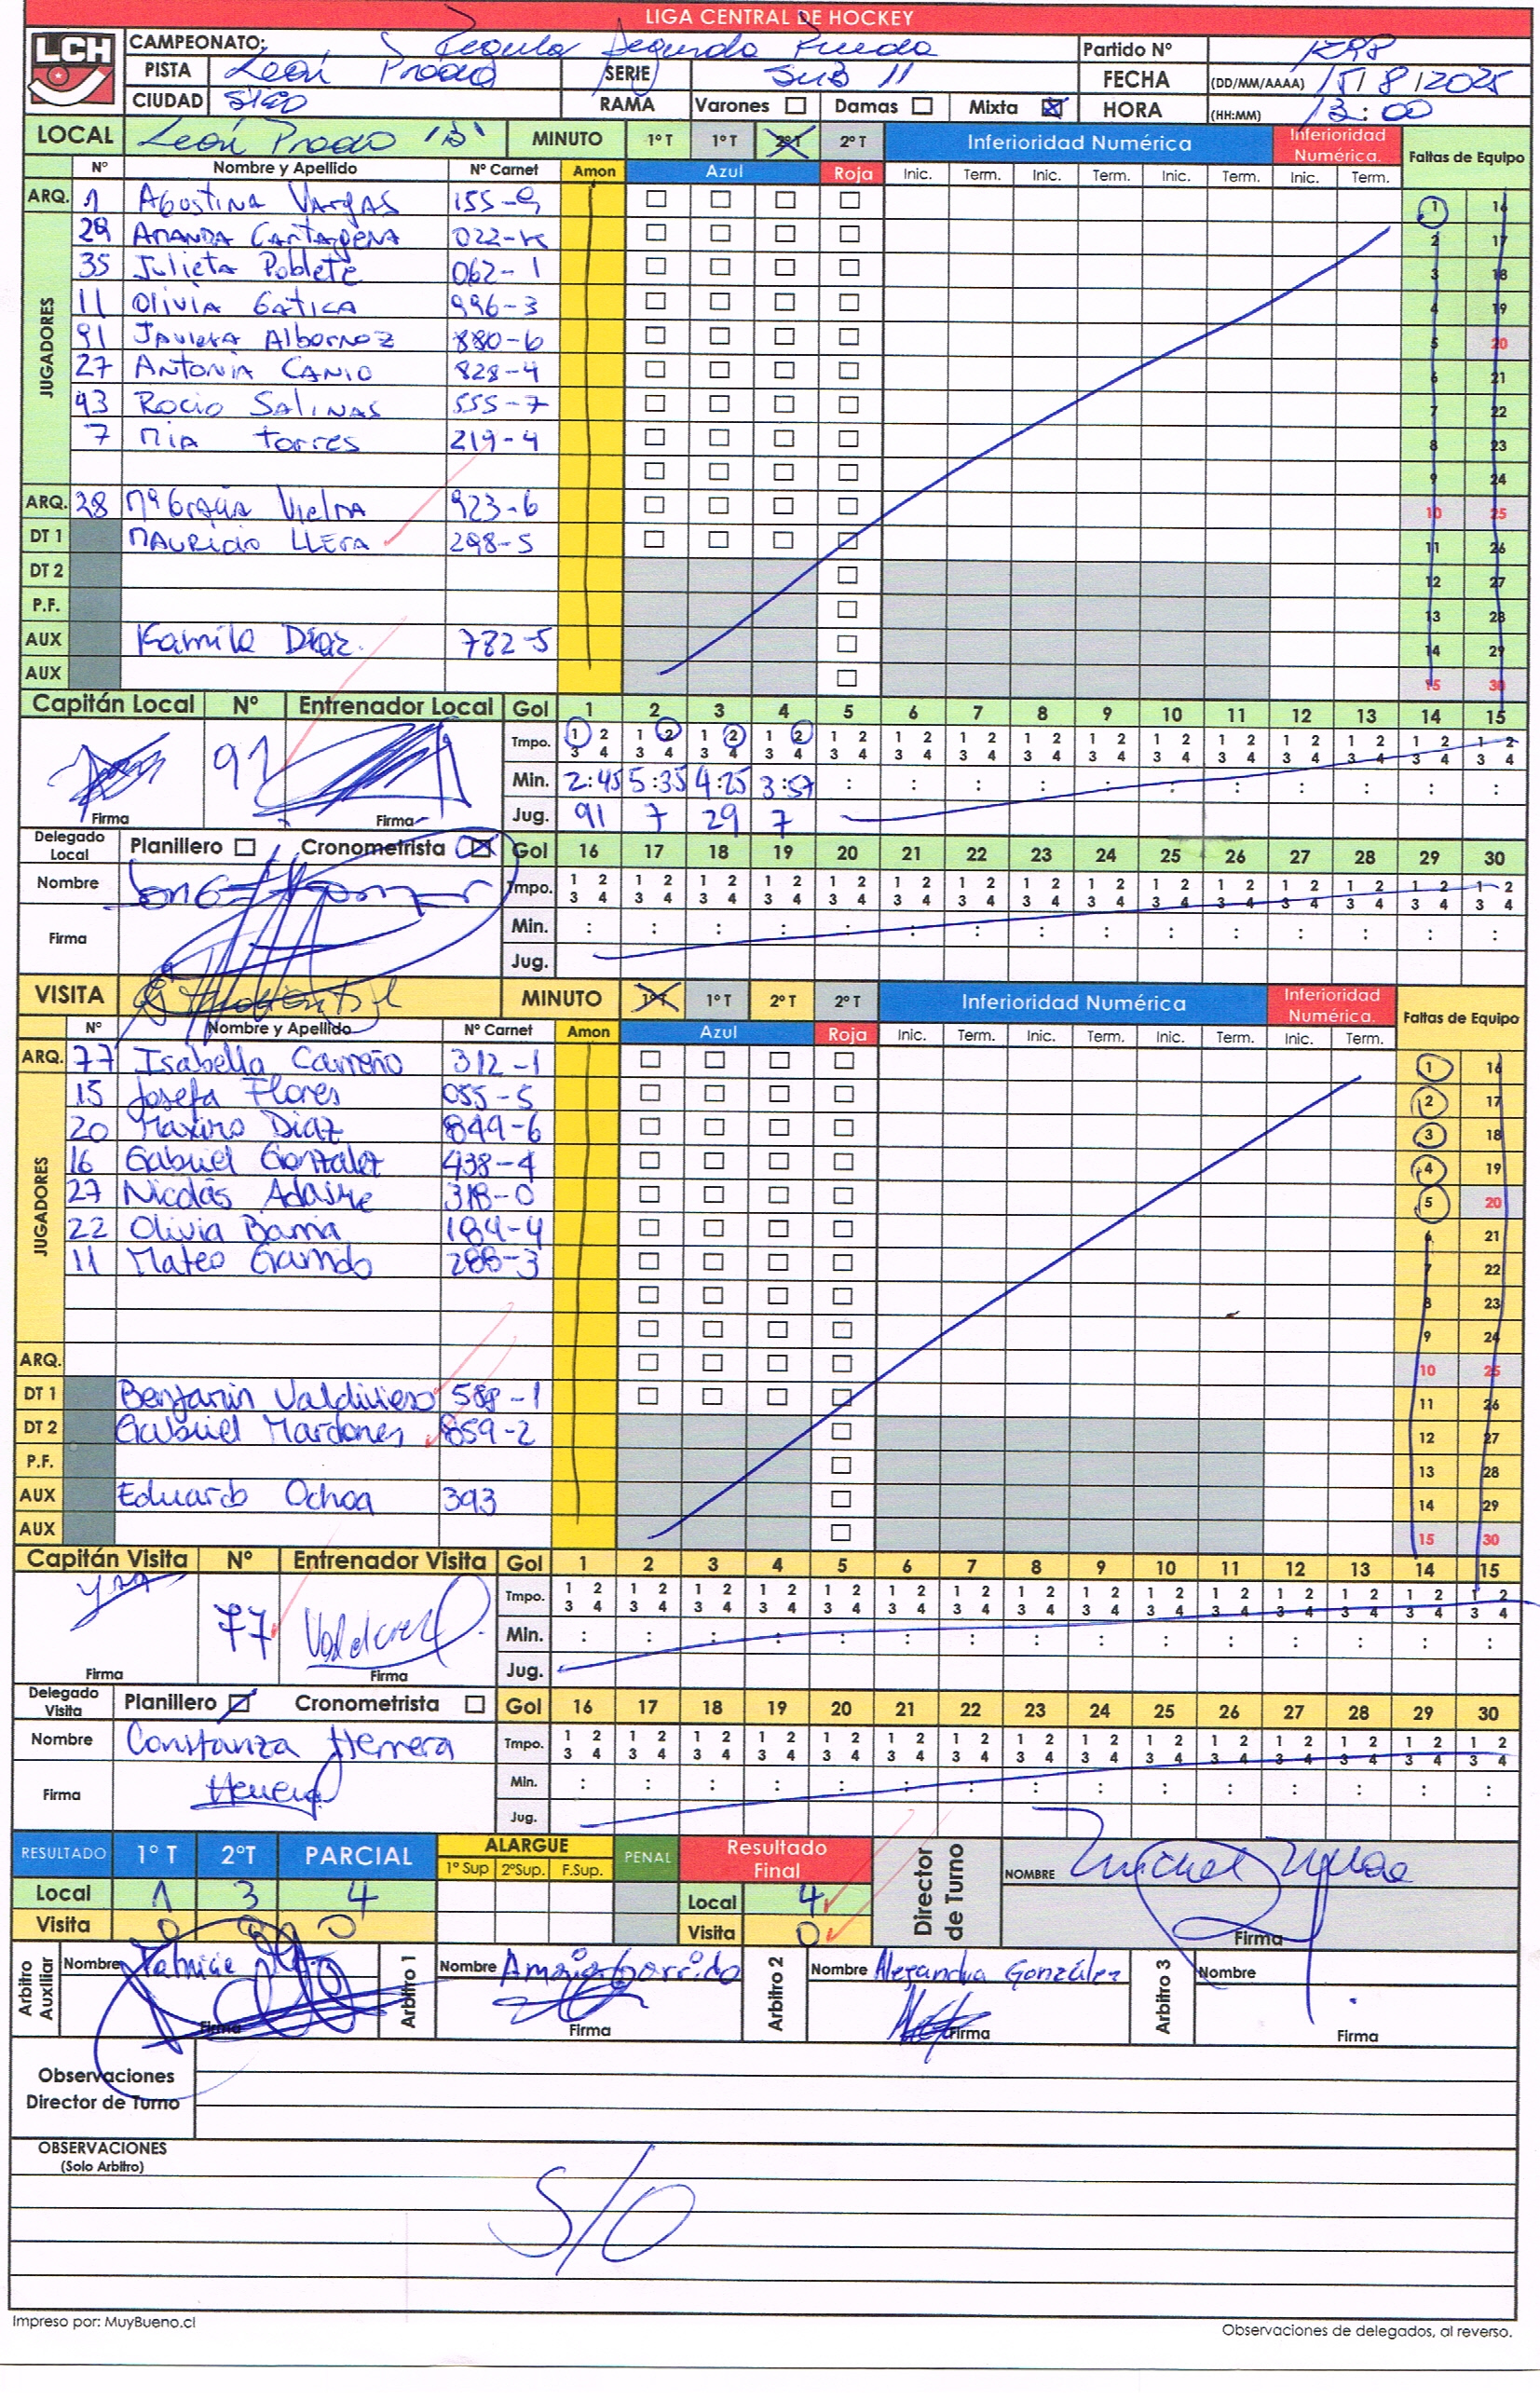 LIGA CENTRAL DE HOCKEY
LCH
CAMPEONATO: Regular Segunda Rueda Partido Nº
PISTA León Prado SERIE SUB 11 FECHA (DD/MM/AAAA) 15/8/2025
CIUDAD STGO RAMA Varones Damas Mixta HORA (HH:MM) 13:00
LOCAL León Prado "B" MINUTO 1º T 1º T 2º T 2º T Inferioridad Numérica Inferioridad Numérica. Faltas de Equipo
Nº Nombre y Apellido Nº Carnet Amon Azul Roja Inic. Term. Inic. Term. Inic. Term. Inic. Term.
JUGADORES
ARQ. 1 Agustina Vargas 155-9 1 16
29 Amanda Cartagena 022-K 2 17
35 Julieta Poblete 062-1 3 18
11 Olivia Gatica 996-3 4 19
91 Javiera Albornoz 880-6 5 20
27 Antonia Canio 828-4 6 21
43 Rocio Salinas 555-7 7 22
7 Mia Torres 219-4 8 23
9 24
ARQ. 28 Mª Gracia Vielma 923-6 10 25
DT 1 Mauricio Llera 298-5 11 26
DT 2 12 27
P.F. 13 28
AUX Kamila Díaz. 782-5 14 29
AUX 15 30
Capitán Local Nº Entrenador Local Gol 1 2 3 4 5 6 7 8 9 10 11 12 13 14 15
Tmpo. 1 2 1 2 1 2 1 2 1 2 1 2 1 2 1 2 1 2 1 2 1 2 1 2 1 2 1 2 1 2
3 4 3 4 3 4 3 4 3 4 3 4 3 4 3 4 3 4 3 4 3 4 3 4 3 4 3 4 3 4
91 Min. 2:45 5:35 4:25 3:57 : : : : : : : : : : :
Firma Firma Jug. 91 7 29 7
Delegado Local Planillero Cronometrista Gol 16 17 18 19 20 21 22 23 24 25 26 27 28 29 30
Nombre Tmpo. 1 2 1 2 1 2 1 2 1 2 1 2 1 2 1 2 1 2 1 2 1 2 1 2 1 2 1 2 1 2
3 4 3 4 3 4 3 4 3 4 3 4 3 4 3 4 3 4 3 4 3 4 3 4 3 4 3 4 3 4
Firma Min. : : : : : : : : : : : : : : :
Jug.
VISITA MINUTO 1º T 1º T 2º T 2º T Inferioridad Numérica Inferioridad Numérica. Faltas de Equipo
Nº Nombre y Apellido Nº Carnet Amon Azul Roja Inic. Term. Inic. Term. Inic. Term. Inic. Term.
JUGADORES
ARQ. 77 Isabella Carreño 312-1 1 16
15 Josefa Flores 055-5 2 17
20 Maximo Diaz 849-6 3 18
16 Gabriel Gonzalez 438-4 4 19
27 Nicolás Adasme 318-0 5 20
22 Olivia Barria 184-4 6 21
11 Mateo Garrido 288-3 7 22
8 23
9 24
ARQ. 10 25
DT 1 Benjamin Valdivieso 588-1 11 26
DT 2 Gabriel Mardones 859-2 12 27
P.F. 13 28
AUX Eduardo Ochoa 393 14 29
AUX 15 30
Capitán Visita Nº Entrenador Visita Gol 1 2 3 4 5 6 7 8 9 10 11 12 13 14 15
Tmpo. 1 2 1 2 1 2 1 2 1 2 1 2 1 2 1 2 1 2 1 2 1 2 1 2 1 2 1 2 1 2
3 4 3 4 3 4 3 4 3 4 3 4 3 4 3 4 3 4 3 4 3 4 3 4 3 4 3 4 3 4
77 Min. : : : : : : : : : : : : : : :
Firma Firma Jug.
Delegado Visita Planillero Cronometrista Gol 16 17 18 19 20 21 22 23 24 25 26 27 28 29 30
Nombre Constanza Herrera Tmpo. 1 2 1 2 1 2 1 2 1 2 1 2 1 2 1 2 1 2 1 2 1 2 1 2 1 2 1 2 1 2
3 4 3 4 3 4 3 4 3 4 3 4 3 4 3 4 3 4 3 4 3 4 3 4 3 4 3 4 3 4
Firma Herrera Min. : : : : : : : : : : : : : : :
Jug.
RESULTADO 1º T 2ºT PARCIAL ALARGUE 1º Sup 2ºSup. F.Sup. PENAL Resultado Final Director de Turno NOMBRE Michel
Local 1 3 4 Local 4
Visita 0 0 0 Visita 0 Firma
Arbitro Auxiliar Nombre Firma Arbitro 1 Nombre Amaia Garrido Firma Arbitro 2 Nombre Alejandra González Firma Arbitro 3 Nombre Firma
Observaciones
Director de Turno
OBSERVACIONES
(Solo Arbitro)
S/O
Impreso por: MuyBueno.cl
Observaciones de delegados, al reverso.